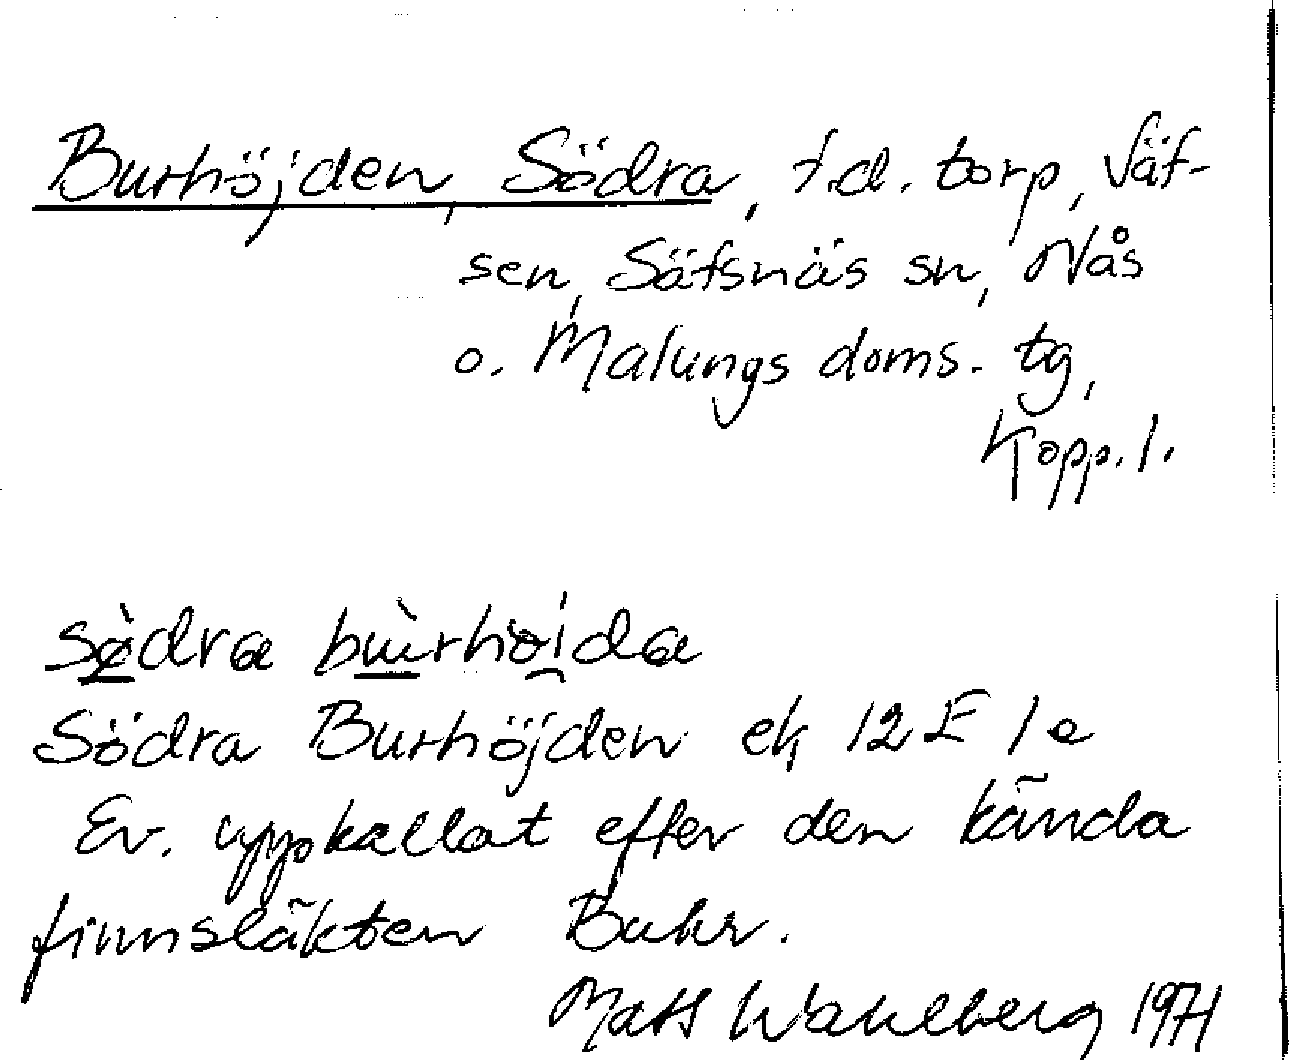 Burhöjden, Södra, f.d. torp, Säf-
sen, Säfsnäs sn, Nås
o. Malungs doms. tg,
Kopp. l.
södra burhöida
Södra Burhöjden ek 12 E 1 e
Ev. uppkallat efter den kända
finnsläkten Buhr.
Mats Wahlberg 1971